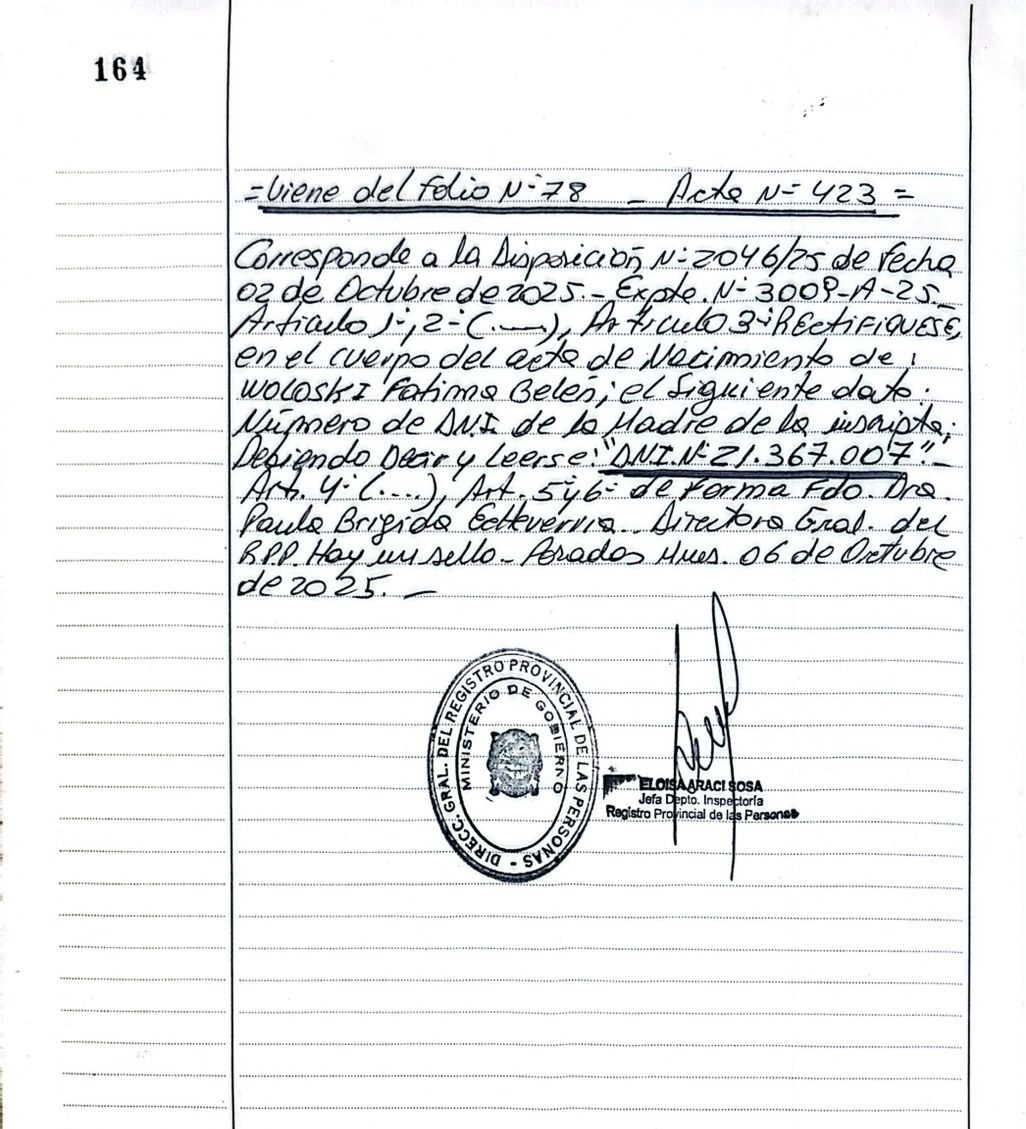 164
= Viene del Folio Nº 78 - Acta Nº 423 =
Corresponde a la Disposición Nº 2046/25 de fecha
02 de Octubre de 2025.- Expte. Nº 3009-A-25.-
Articulo 1º, 2º (.....), Articulo 3º RECTIFIQUESE,
en el cuerpo del acta de Nacimiento de:
WOLOSKI Fatima Belén; el siguiente dato:
Número de DNI. de la Madre de la inscripta;
Debiendo Decir y Leerse: "DNI. Nº 21.367.007".-
Art. 4º (....), Art. 5º y 6º de Forma Fdo. Dra.
Paula Brigida Echeverria. Directora Gral. del
R.P.P. Hay un sello.- Posadas Mnes. 06 de Octubre
de 2025. -
DIRECC. GRAL. DEL REGISTRO PROVINCIAL DE LAS PERSONAS -
MINISTERIO DE GOBIERNO
ELOISA ARACI SOSA
Jefa Depto. Inspectoría
Registro Provincial de las Personas